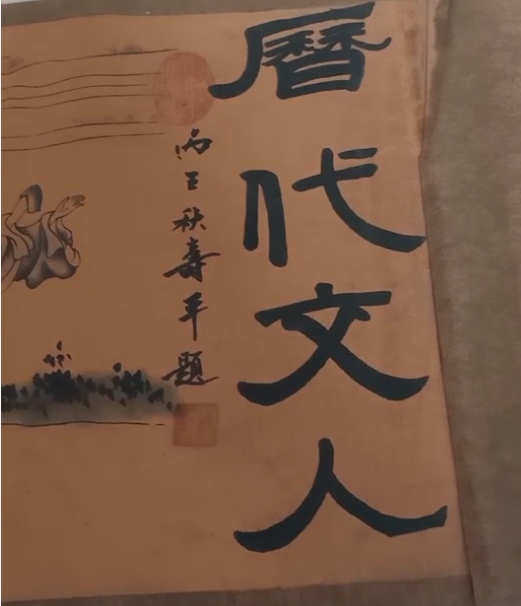 曆代文人
丙王秋壽平題